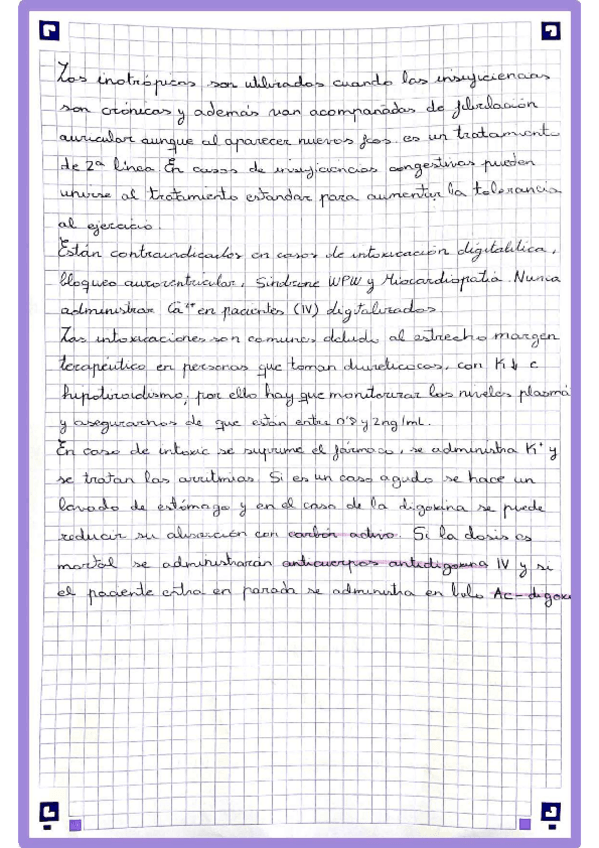 Los inotrópicos son utilizados cuando las insuficiencias
son crónicas y además van acompañadas de fibrilación
auricular aunque al aparecer nuevos fcos. es un tratament
de 2ª línea. En casos de insuficiencias congestivas pueden
unirse al tratamiento estandar para aumentar la tolerancia
al ejercicio.
Están contraindicados en casos de intoxicación digitalítica,
bloqueo auroventricular, Sindrome WPW y Miocardiopatia. Nunca
administrar Ca²⁺ en pacientes (IV) digitalizados.
Las intoxicaciones son comunes debido al estrecho margen
terapéutico en personas que toman diureticocos, con K↓ e
hipotiroidismo, por ello hay que monitorizar los niveles plasmá
y asegurarnos de que están entre 0'8 y 2ng/mL.
En caso de intoxic se suprime el fármaco, se administra K⁺ y
se tratan las arritmias. Si es un caso agudo se hace un
lavado de estómago y en el caso de la digoxina se puede
reducir su absorción con carbón activo. Si la dosis es
mortal se administrarán anticuerpos antidigoxina IV y si
el paciente entra en parada se administra en bolo Ac-digox